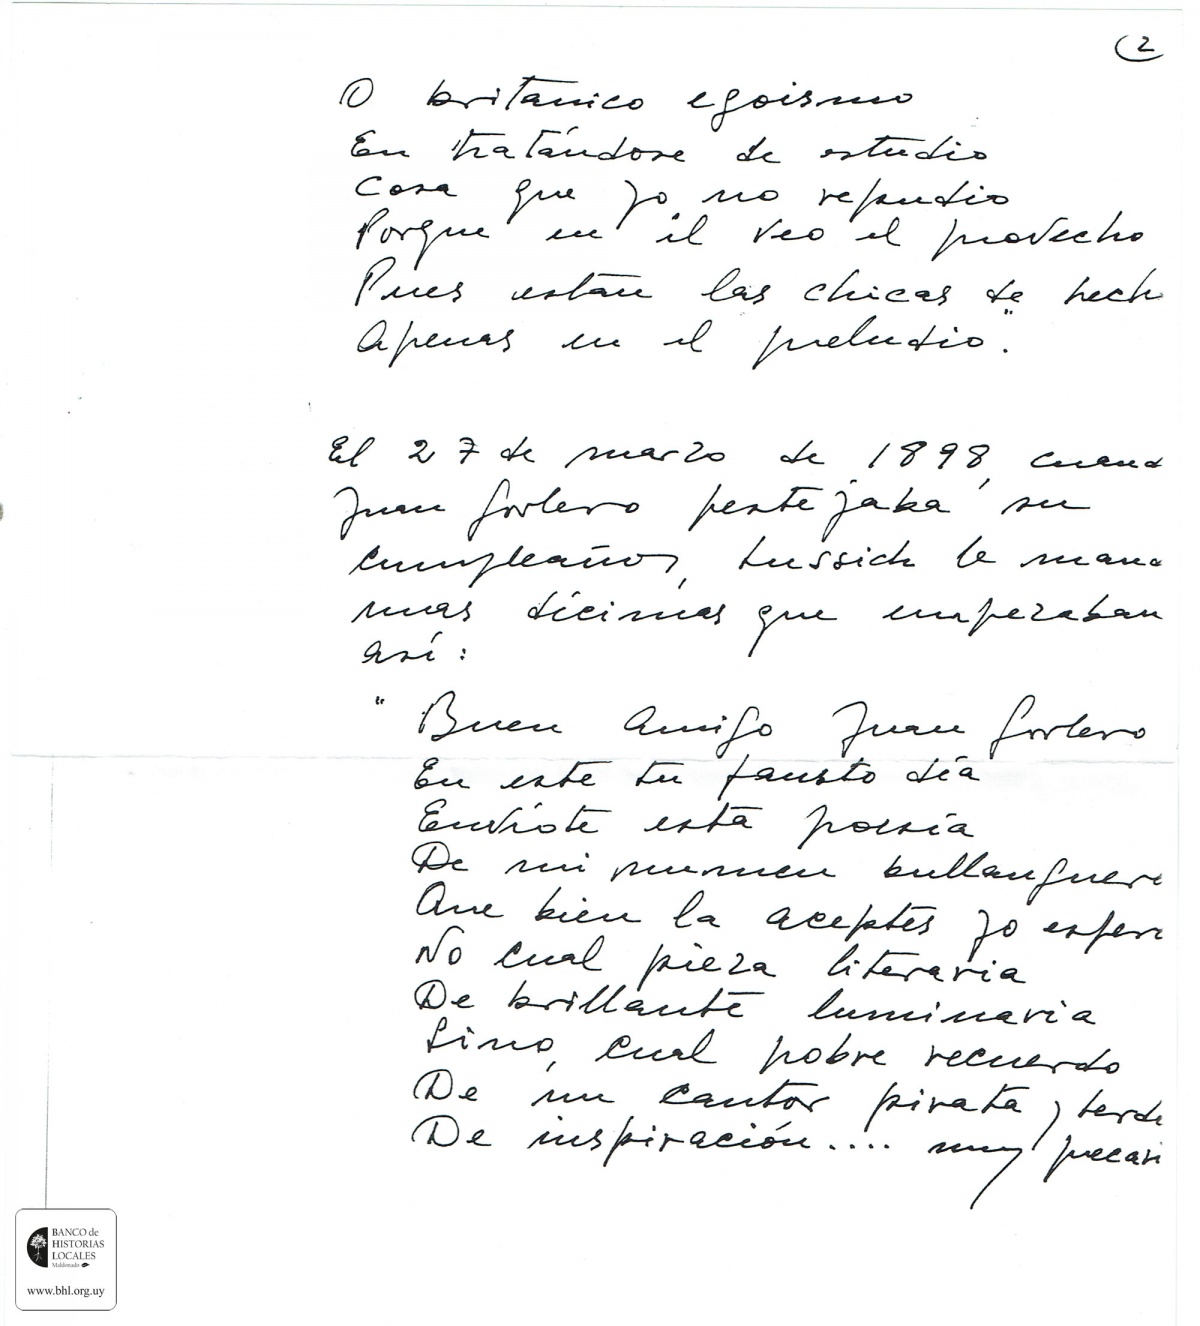 2
O britanico egoismo
En tratándose de estudio
Cosa que yo no repudio
Porque en él veo el provecho
Pues están las chicas de hech
Apenas en el preludio."
El 27 de marzo de 1898, cuand
Juan Gorlero festejaba su
cumpleaños, Lussich le mand
unas décimas que empezaban
así:
"Buen Amigo Juan Gorlero
En este tu fausto día
Envíote esta poesía
De mi numen bullanguer
Que bien la aceptes yo esper
No cual pieza literaria
De brillante luminaria
Sino, cual pobre recuerdo
De un cantor pirata y lerd
De inspiración.... muy precari
BANCO de
HISTORIAS
LOCALES
Maldonado
www.bhl.org.uy